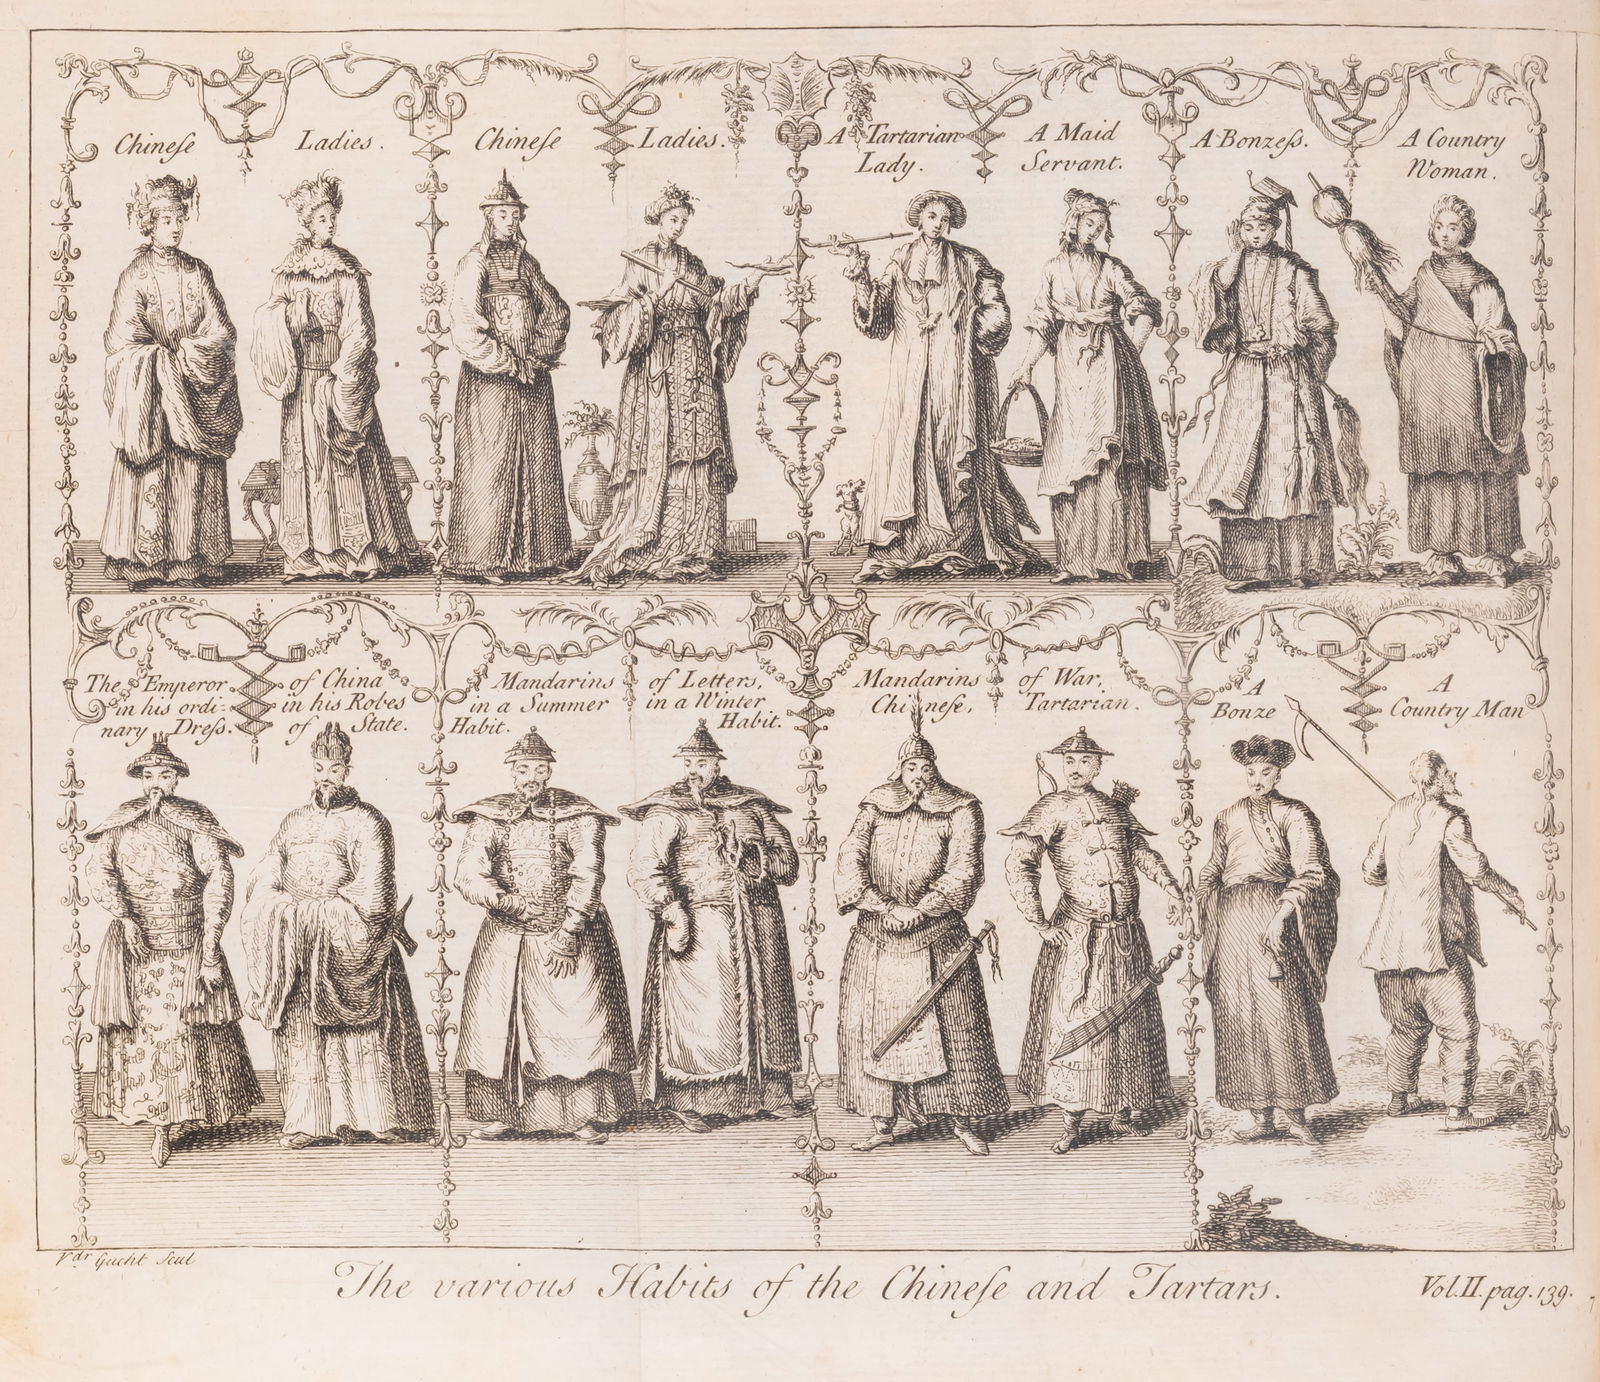 Chineſe Ladies.
Chineſe Ladies.
A Tartarian
Lady.
A Maid
Servant.
A Bonzeſs.
A Country
Woman.
The Emperor of China
in his ordi- in his Robes
nary Dreſs. of State.
Mandarins of Letters,
in a Summer in a Winter
Habit. Habit.
Mandarins of War,
Chineſe, Tartarian.
A
Bonze
A
Country Man
Vdr Gucht Scul
The various Habits of the Chineſe and Tartars.
Vol. II. pag. 139.